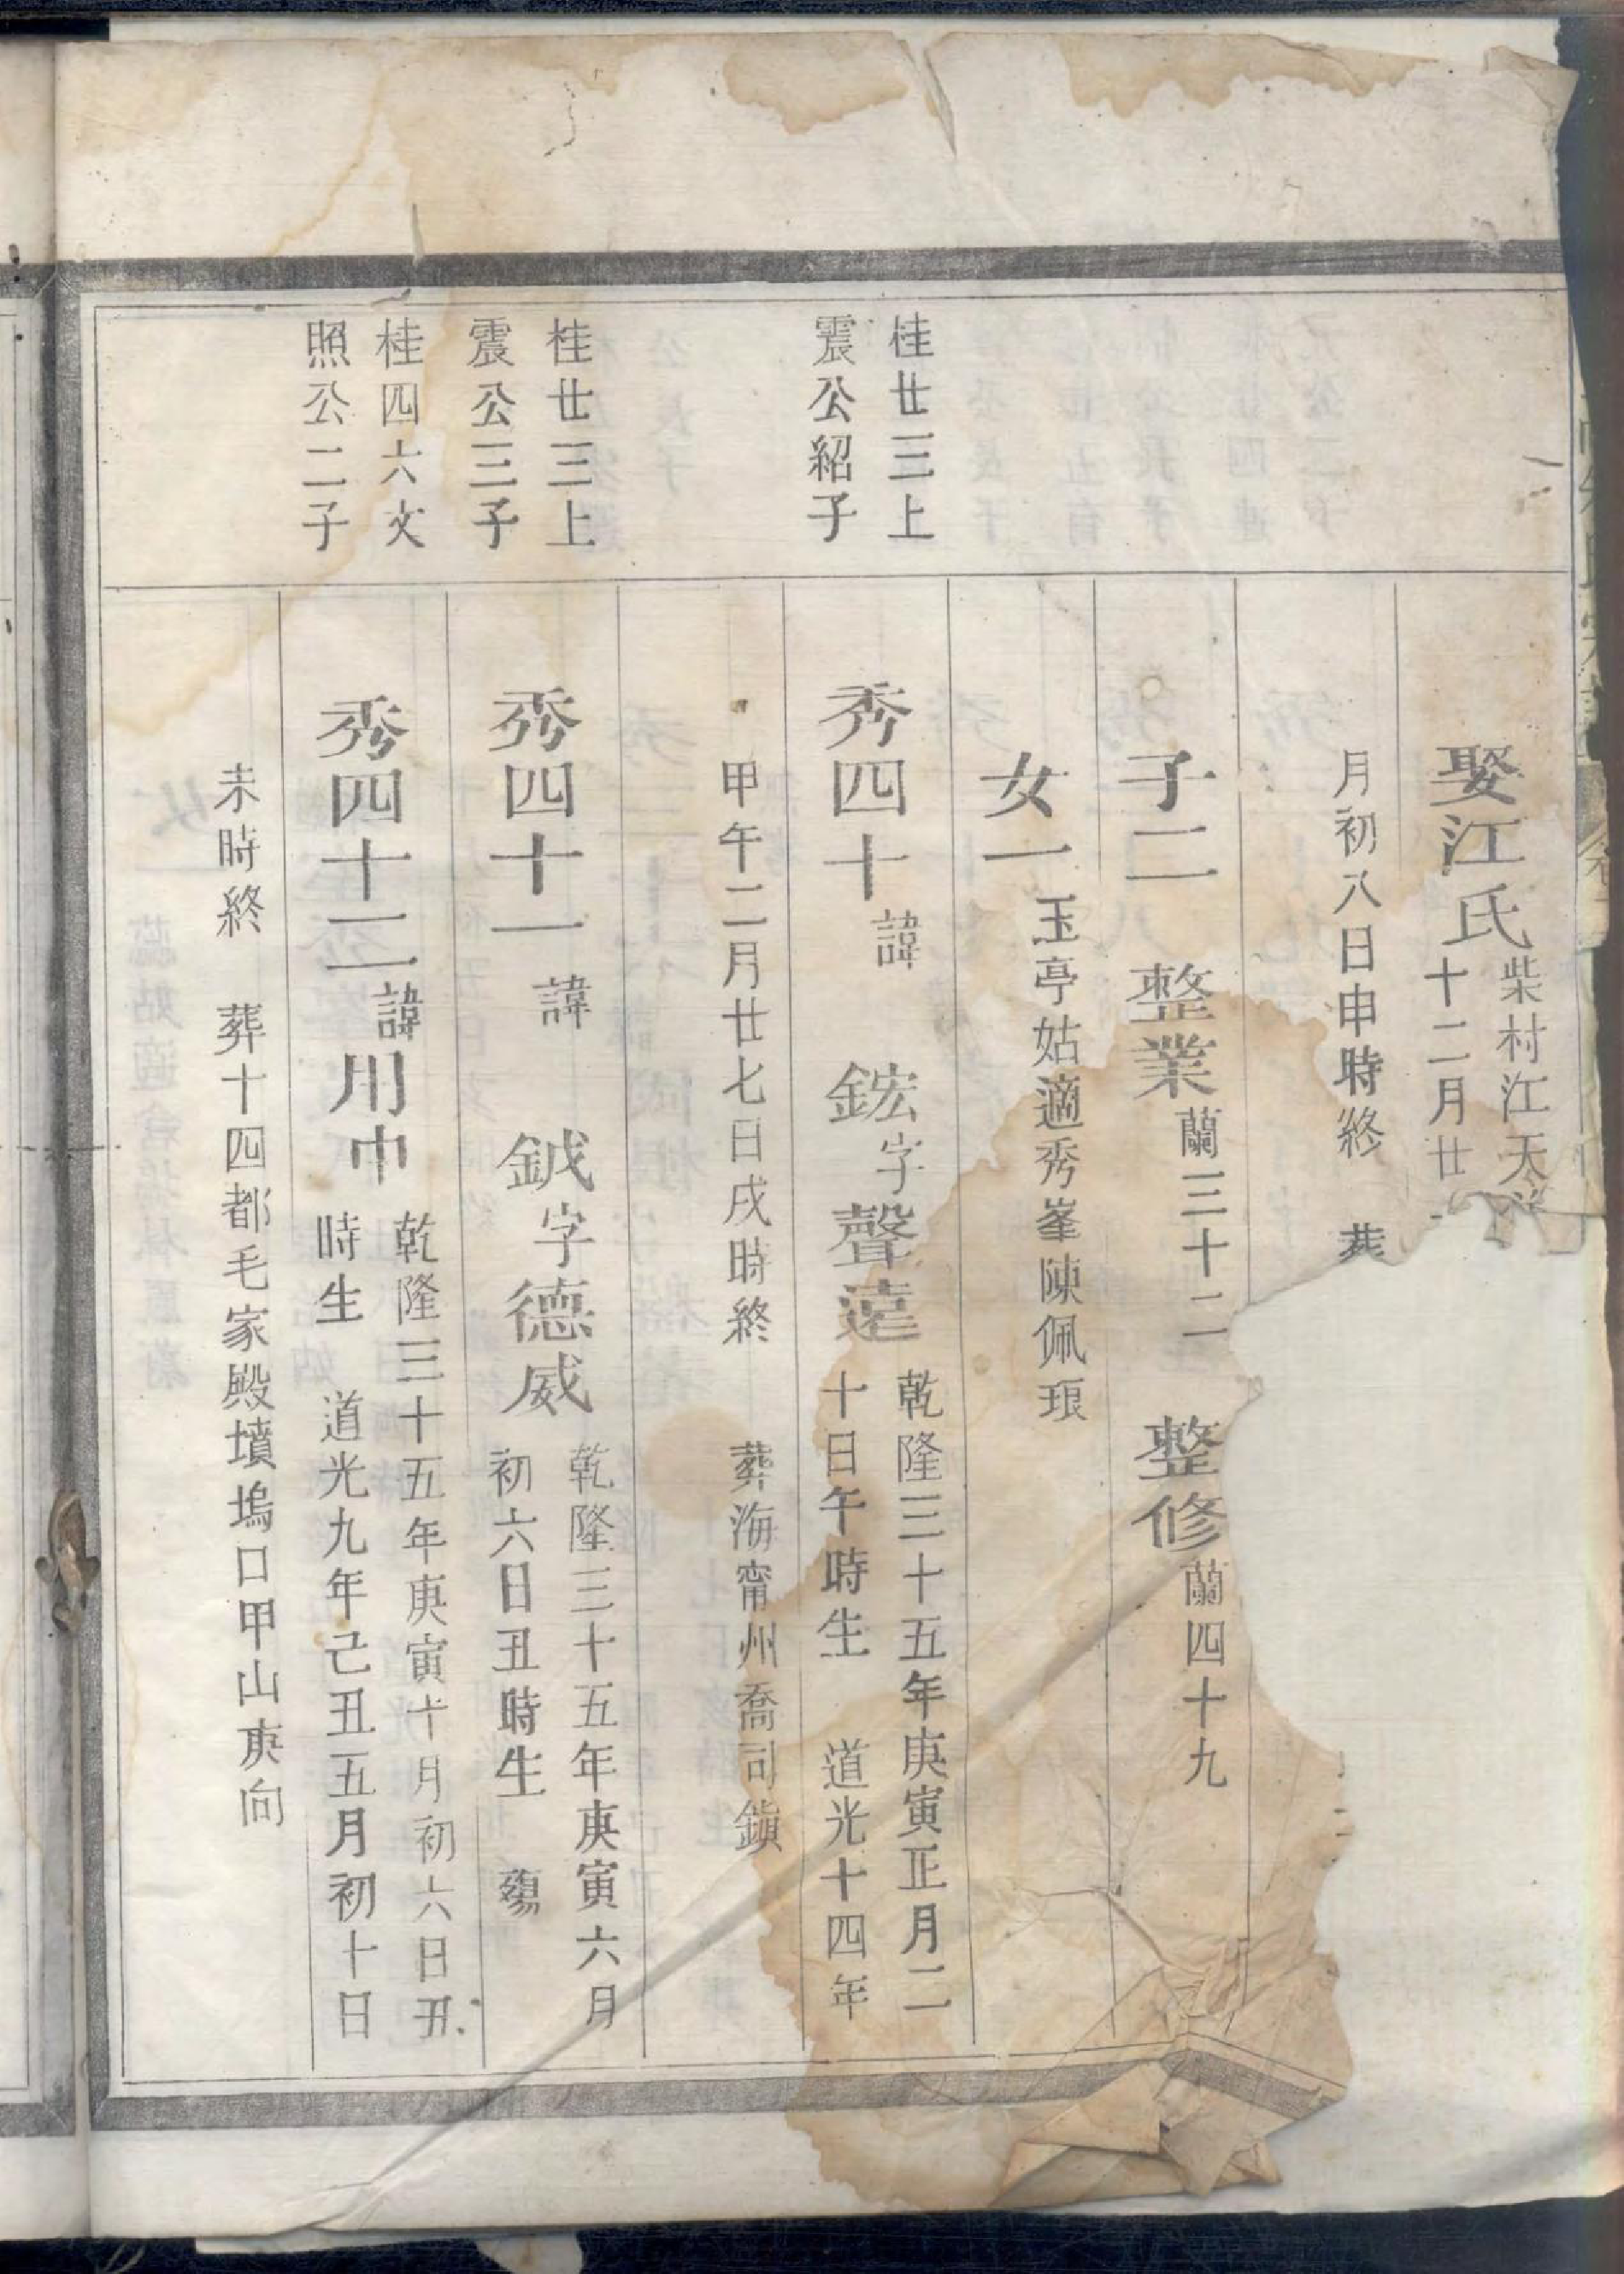 娶江氏柴村江天
十二月廿
月初八日申時終
子二 整業蘭三十二 整修蘭四十九
女一玉亭姑適秀峯陳佩琅
桂廿三上
震公紹子
秀四十諱 鋐字聲遠乾隆三十五年庚寅正月二
十日午時生 道光十四年
甲午二月廿七日戌時終 葬海甯州喬司鎮
桂廿三上
震公三子
秀四十一諱 鉞字德威乾隆三十五年庚寅六月
初六日丑時生 殤
桂四六文
照公二子
秀四十二諱川巾乾隆三十五年庚寅十月初六日丑
時生 道光九年己丑五月初十日
未時終 葬十四都毛家殿墳塢口甲山庚向